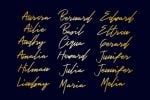 Aurora Bernard Edward
Allie Basil Elliren
Audrey Cigua Gerard
Amalia Howard Jennifer
Hilman Julia Jennifer
Lindsay Maria Melia